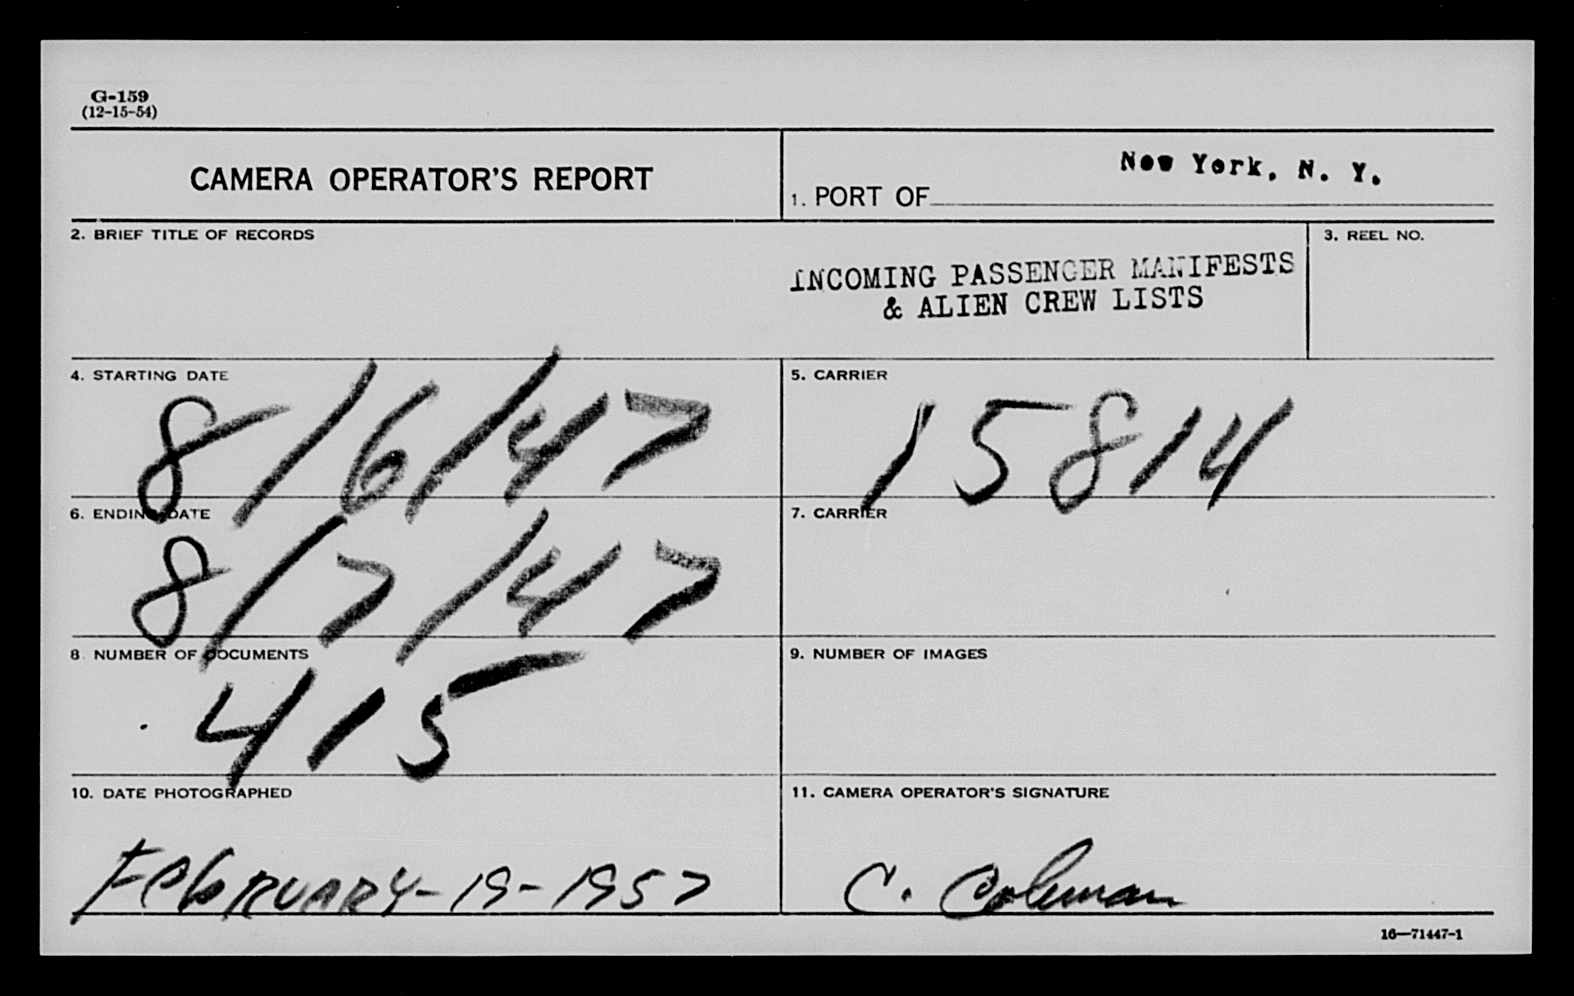 G-159
(12-15-54)
CAMERA OPERATOR'S REPORT
1. PORT OF New York, N. Y.
2. BRIEF TITLE OF RECORDS
INCOMING PASSENGER MANIFESTS
& ALIEN CREW LISTS
3. REEL NO.
4. STARTING DATE
8/6/47
5. CARRIER
15814
6. ENDING DATE
8/7/47
7. CARRIER
8 NUMBER OF DOCUMENTS
415
9. NUMBER OF IMAGES
10. DATE PHOTOGRAPHED
FEBRUARY-19-1957
11. CAMERA OPERATOR'S SIGNATURE
C. Coleman
16—71447-1